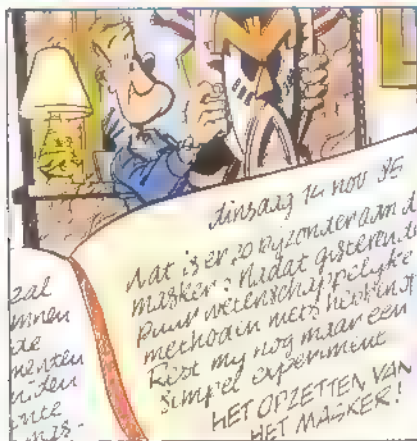 zal
innen
de
menten
uiden
ente
mas-
dinsdag 14 nov 95
Wat is er zo byzonder aan d
masker? Nadat gisteren d
puur wetenschappelyke
methoden niets hebben o
Rest my nog maar een
simpel experiment
HET OPZETTEN VAN
HET MASKER!